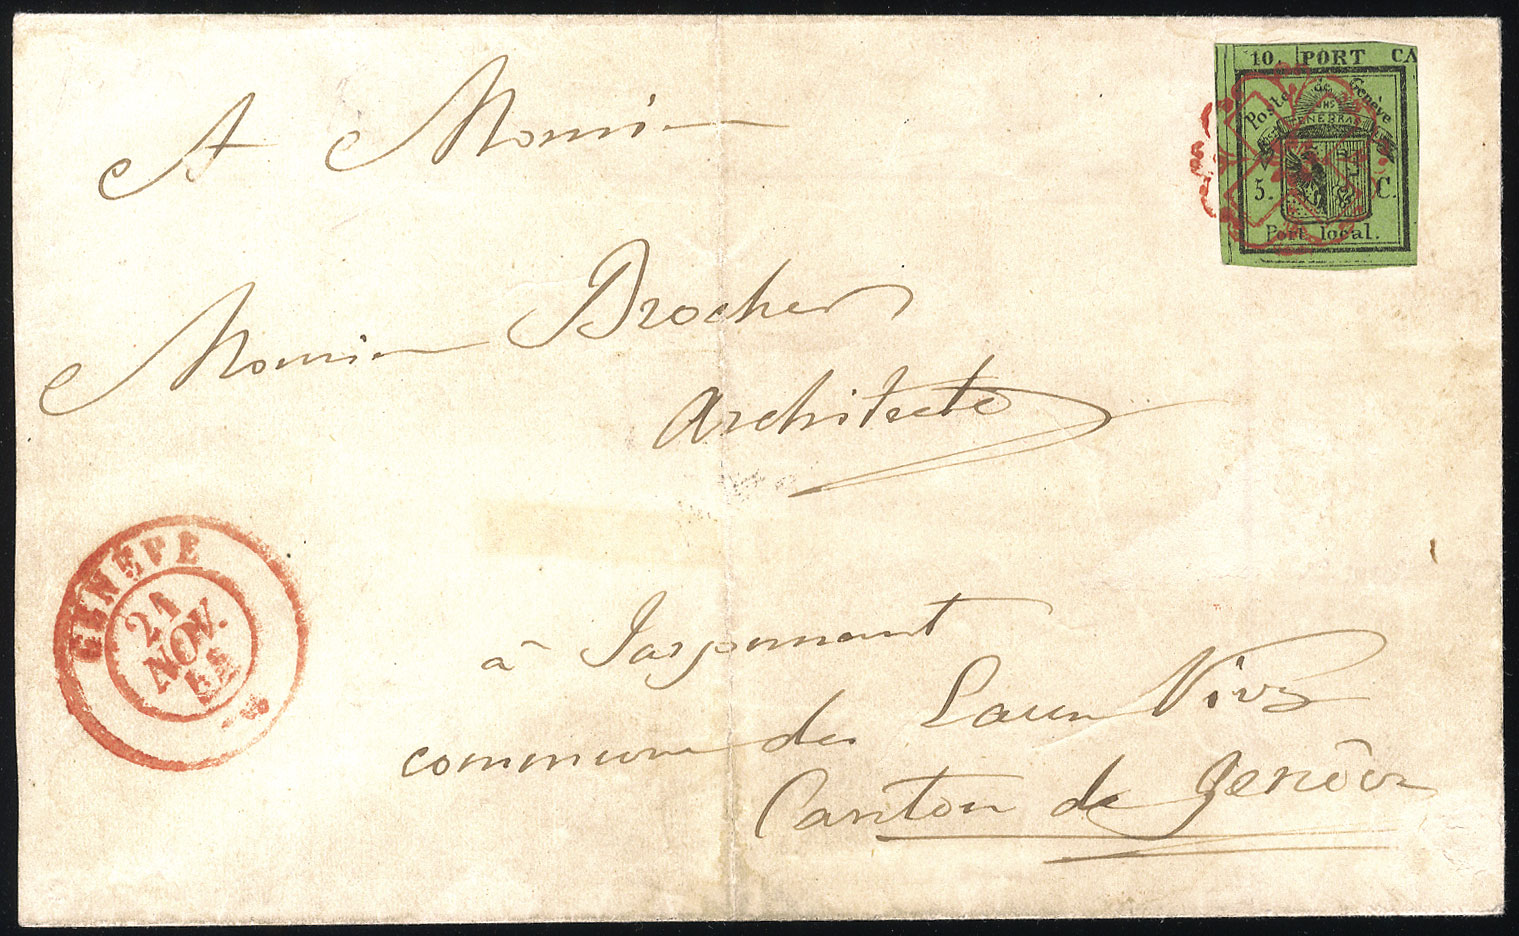 10. PORT CA
Poste de Genève
5. C.
Port local.
A Monsieur
Monsieur Brocher
Architecte
GENEVE
21
NOV.
à Jargonnant
commune des Eaux Vives
Canton de Genève